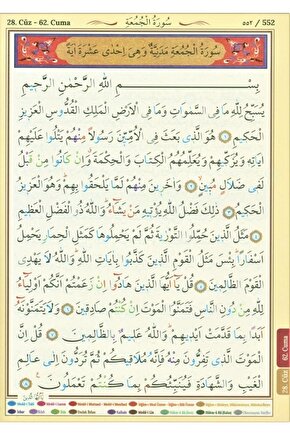 28. Cüz - 62. Cuma سُورَةُ الْجُمُعَةِ ٥٥٢ / 552
سُورَةُ الْجُمُعَةِ مَدَنِيَّةٌ وَهِيَ اِحْدٰى عَشْرَةَ اٰيَةً
بِسْمِ اللّٰهِ الرَّحْمٰنِ الرَّحِيمِ
يُسَبِّحُ لِلّٰهِ مَا فِي السَّمٰوَاتِ وَمَا فِي الْاَرْضِ الْمَلِكِ الْقُدُّوسِ الْعَزِيزِ
الْحَكِيمِ ١ هُوَ الَّذِي بَعَثَ فِي الْاُمِّيّنَ رَسُولًا مِنْهُمْ يَتْلُوا عَلَيْهِمْ
اٰيَاتِهِ وَيُزَكِّيهِمْ وَيُعَلِّمُهُمُ الْكِتَابَ وَالْحِكْمَةَ وَاِنْ كَانُوا مِنْ قَبْلُ
لَفِي ضَلَالٍ مُبِينٍ ٢ وَاٰخَرِينَ مِنْهُمْ لَمَّا يَلْحَقُوا بِهِمْ وَهُوَ الْعَزِيزُ
الْحَكِيمُ ٣ ذٰلِكَ فَضْلُ اللّٰهِ يُؤْتِيهِ مَنْ يَشَاءُ وَاللّٰهُ ذُو الْفَضْلِ الْعَظِيمِ
٤ مَثَلُ الَّذِينَ حُمِّلُوا التَّوْرٰيةَ ثُمَّ لَمْ يَحْمِلُوهَا كَمَثَلِ الْحِمَارِ يَحْمِلُ
اَسْفَارًا بِئْسَ مَثَلُ الْقَوْمِ الَّذِينَ كَذَّبُوا بِاٰيَاتِ اللّٰهِ وَاللّٰهُ لَا يَهْدِي
الْقَوْمَ الظَّالِمِينَ ٥ قُلْ يَا اَيُّهَا الَّذِينَ هَادُوا اِنْ زَعَمْتُمْ اَنَّكُمْ اَوْلِيَاءُ
لِلّٰهِ مِنْ دُونِ النَّاسِ فَتَمَنَّوُا الْمَوْتَ اِنْ كُنْتُمْ صَادِقِينَ ٦ وَلَا يَتَمَنَّوْنَهُ
اَبَدًا بِمَا قَدَّمَتْ اَيْدِيهِمْ وَاللّٰهُ عَلِيمٌ بِالظَّالِمِينَ ٧ قُلْ اِنَّ
الْمَوْتَ الَّذِي تَفِرُّونَ مِنْهُ فَاِنَّهُ مُلَاقِيكُمْ ثُمَّ تُرَدُّونَ اِلٰى عَالِمِ
الْغَيْبِ وَالشَّهَادَةِ فَيُنَبِّئُكُمْ بِمَا كُنْتُمْ تَعْمَلُونَ ٨
62. Cuma
28. Cüz